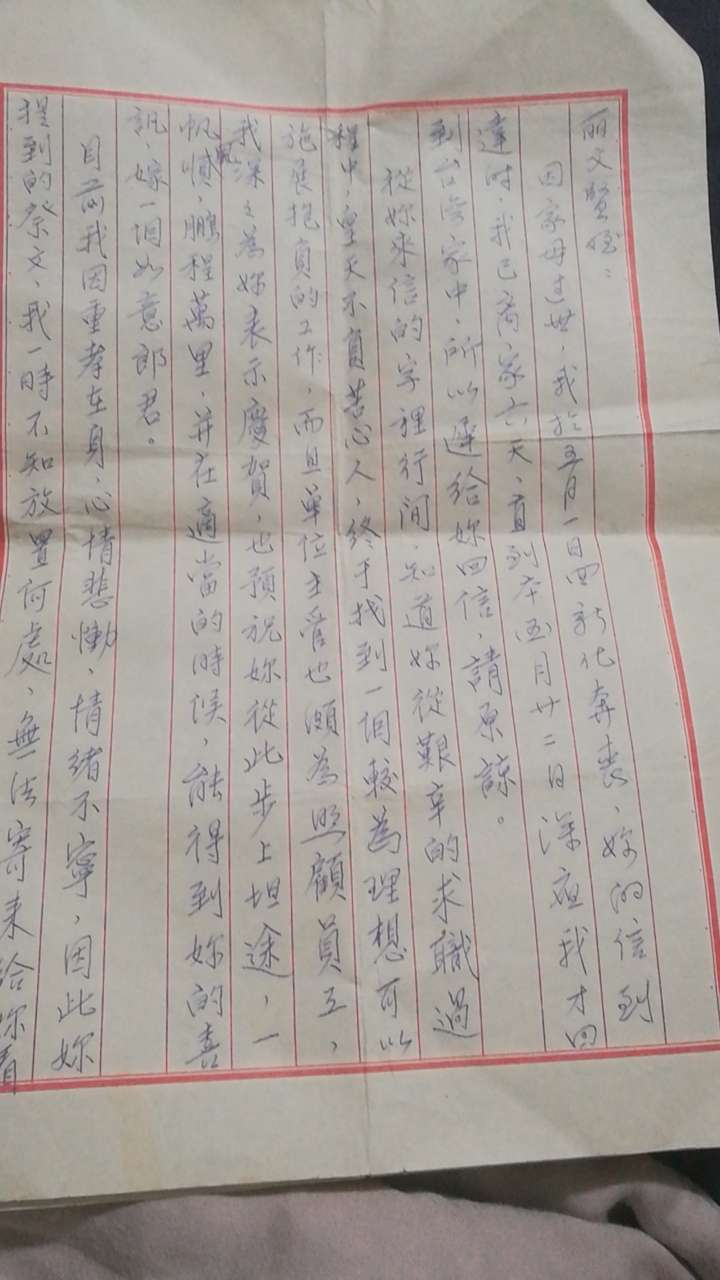 丽文賢姪：
因家母過世，我於五月一日回新化奔喪，妳的信到
達時，我已离家六天，直到本五月廿二日深夜我才回
到台灣家中，所以遲給妳回信，請原諒。
從妳來信的字裡行間，知道妳從艱辛的求職過
程中，皇天不負苦心人，終于找到一個較為理想可以
施展抱負的工作，而且單位主管也頗為照顧員工，
我深之為妳表示慶賀，也預祝妳從此步上坦途，一
帆風順，鵬程萬里，并在適當的時候，能得到妳的喜
訊，嫁一個如意郎君。
目前我因重孝在身，心情悲慟，情緒不寧，因此妳
提到的祭文，我一時不知放置何處，無法寄來給妳看